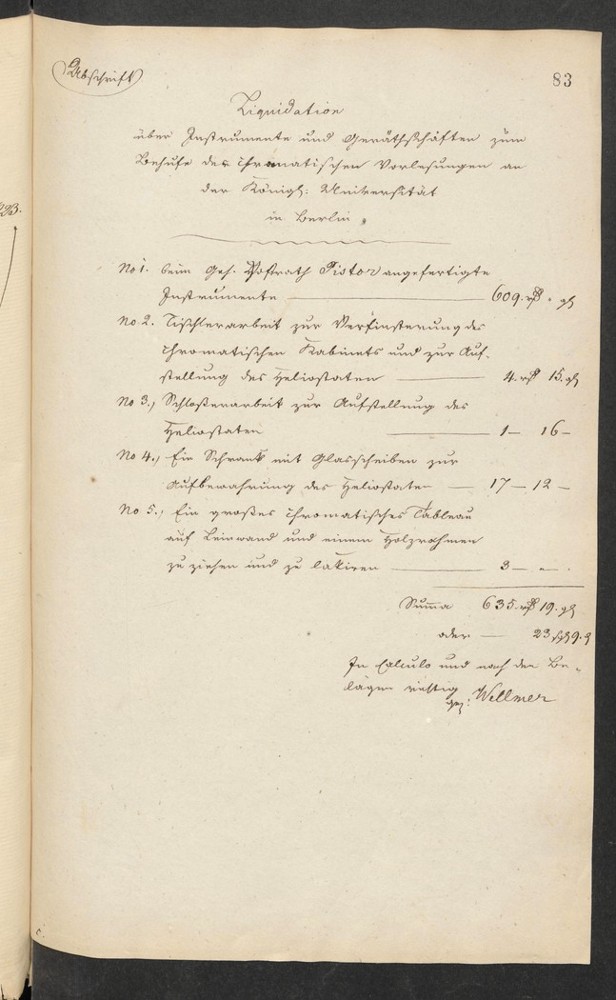 Abschrift
83
Liquidation
über Instrumente und Geräthschaften zum
Behufe der chromatischen Vorlesungen an
der Königl: Universität
in Berlin.
No 1. beim Geh. Postrath Pistor angefertigte
Instrumente — 609. rℓ - gl
No 2. Tischlerarbeit zur Verfinsterung des
chromatischen Kabinets und zur Auf-
stellung des Heliostaten — 4. rℓ 15. gl
No 3., Schlosserarbeit zur Aufstellung des
Heliostaten — 1 — 16 —
No 4., Ein Schrank mit Glasscheiben zur
Aufbewahrung des Heliostaten — 17 — 12 —
No 5., Ein großes chromatisches Tableau
auf Leinwand und einem Holzrahmen
zu ziehen und zu lakiren — 3 — - .
Summa 635. rℓ 19. gl
oder — 23 sgl 9. ₰
In calculo und nach den Be-
lägen richtig
gez: Wellmer